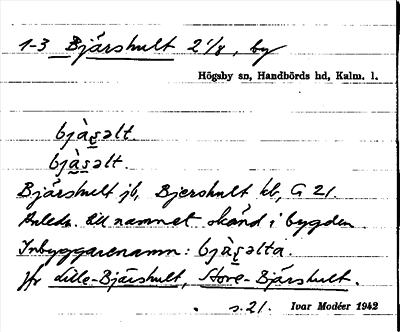 1-3 Bjärshult 2 1/8, by
Högsby sn, Handbörds hd, Kalm. l.
bjà̀s̬əlt
bjà̀s̬əlt.
Bjärshult jb, Bjershult kb, G 21.
Anledn. till namnet okänd i bygden
Inbyggarenamn: bjà̀s̬əlta.
Jfr Lille-Bjärshult, Store-Bjärshult.
s. 21. Ivar Modéer 1942